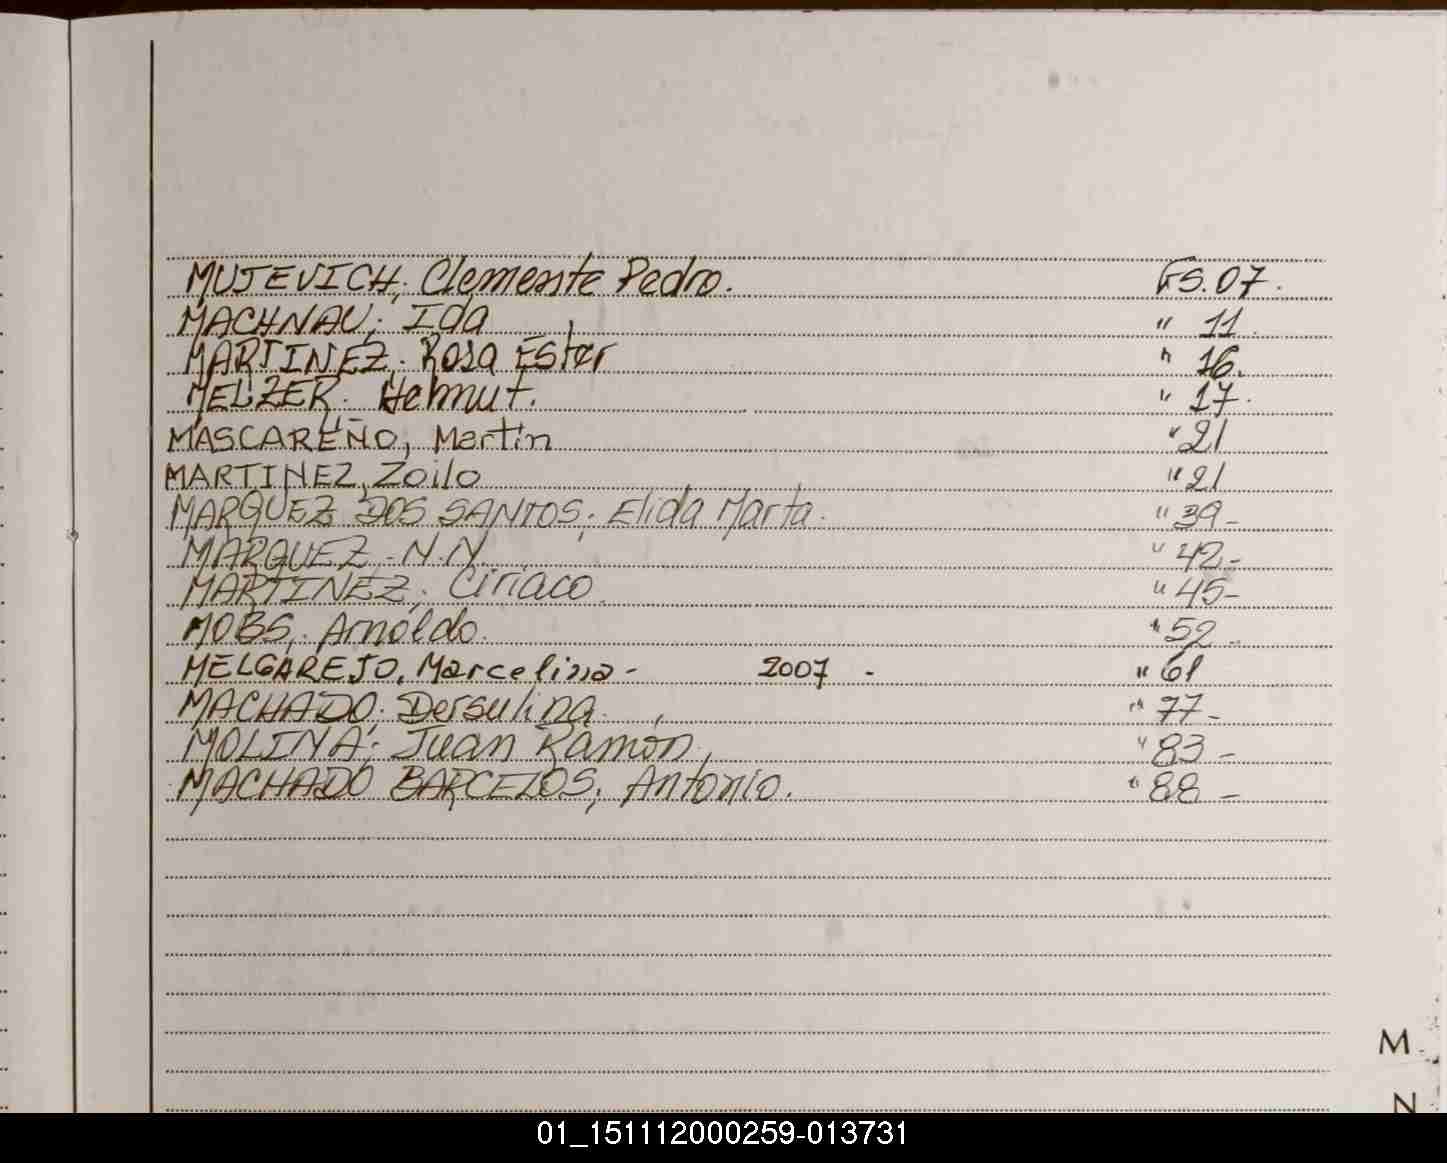 MUJEVICH, Clemente Pedro. FS. 07.
MACHNAU, Ida " 11.
MARTINEZ, Rosa Ester " 16.
MELZER, Helmut. " 17.
MASCAREÑO, Martín " 21
MARTINEZ, Zoilo " 21
MARQUEZ DOS SANTOS, Elida Marta. " 39-
MARQUEZ, N.N. " 42-
MARTINEZ, Ciriaco. " 45-
MOBS, Arnoldo. " 52-
MELGAREJO, Marcelina - 2007 - " 61
MACHADO, Dersulina. " 77-
MOLINA, Juan Ramón, " 83-
MACHADO BARCELOS, Antonio. " 88-
M
N
01_151112000259-013731